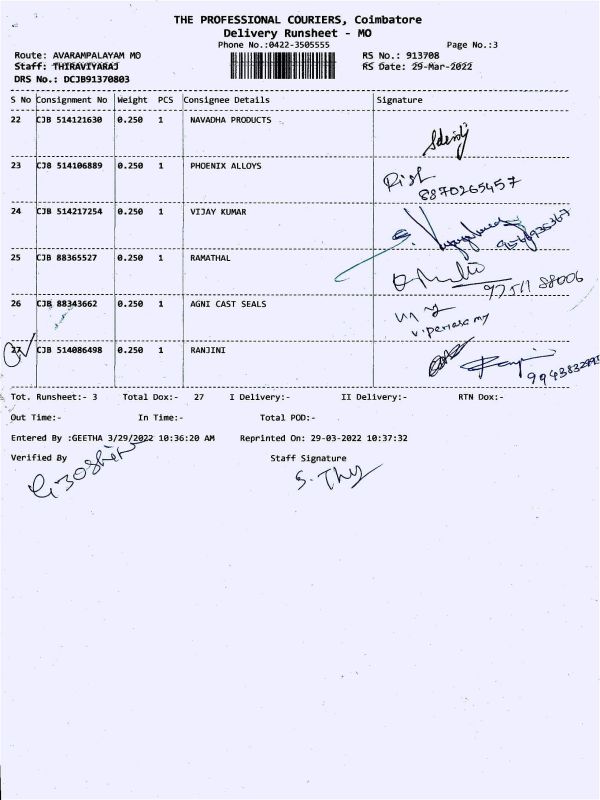 THE PROFESSIONAL COURIERS, Coimbatore
Delivery Runsheet - MO
Phone No.:0422-3505555 Page No.:3
Route: AVARAMPALAYAM MO RS No.: 913708
Staff: THIRAVIYARAJ RS Date: 29-Mar-2022
DRS No.: DCJB91370803
S No Consignment No Weight PCS Consignee Details Signature
22 CJB 514121630 0.250 1 NAVADHA PRODUCTS
23 CJB 514106889 0.250 1 PHOENIX ALLOYS
8870265457
24 CJB 514217254 0.250 1 VIJAY KUMAR
25 CJB 88365527 0.250 1 RAMATHAL
97511 88006
26 CJB 88343662 0.250 1 AGNI CAST SEALS
27 CJB 514086498 0.250 1 RANJINI
Tot. Runsheet:- 3 Total Dox:- 27 I Delivery:- II Delivery:- RTN Dox:-
Out Time:- In Time:- Total POD:-
Entered By :GEETHA 3/29/2022 10:36:20 AM Reprinted On: 29-03-2022 10:37:32
Verified By Staff Signature
S. Thy